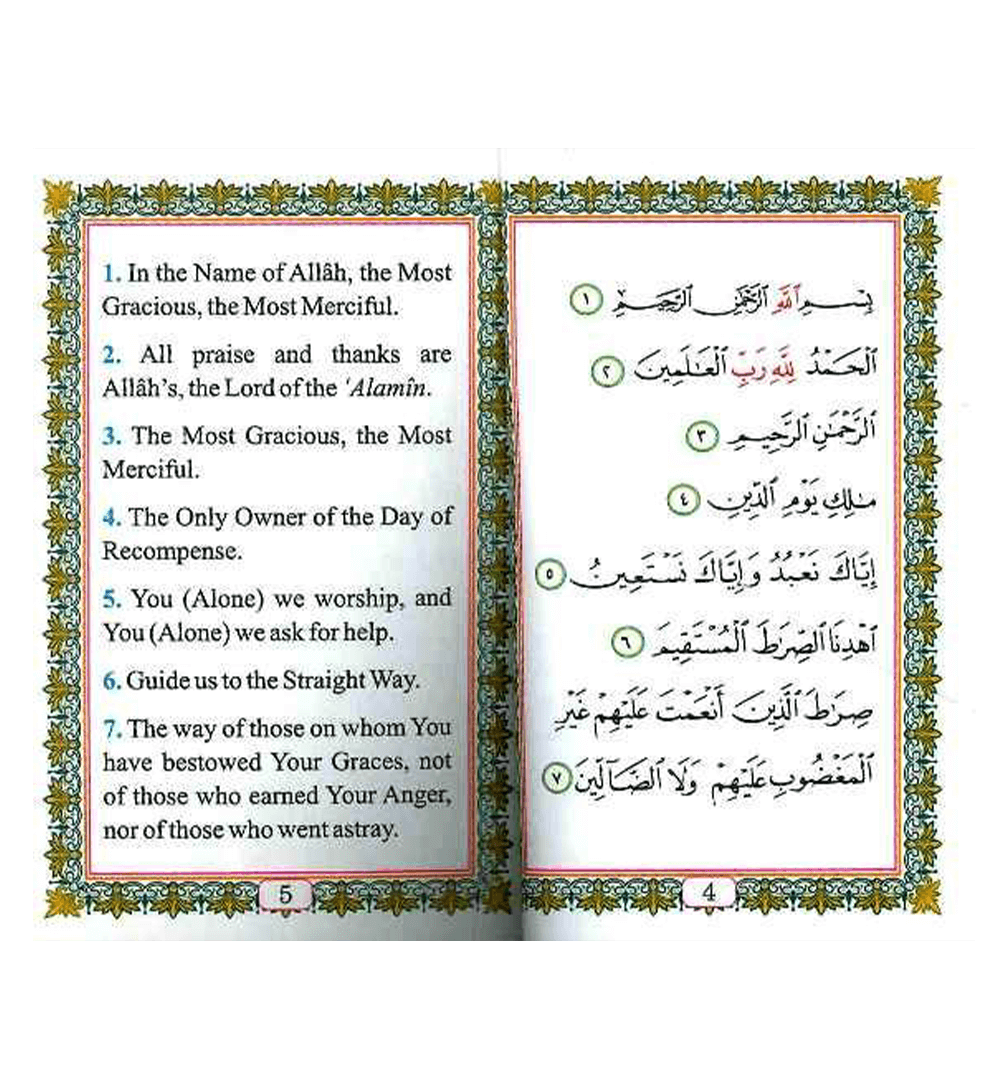 1. In the Name of Allâh, the Most
Gracious, the Most Merciful.
2. All praise and thanks are
Allâh's, the Lord of the 'Alamîn.
3. The Most Gracious, the Most
Merciful.
4. The Only Owner of the Day of
Recompense.
5. You (Alone) we worship, and
You (Alone) we ask for help.
6. Guide us to the Straight Way.
7. The way of those on whom You
have bestowed Your Graces, not
of those who earned Your Anger,
nor of those who went astray.
5
بِسْمِ ٱللَّهِ ٱلرَّحْمَٰنِ ٱلرَّحِيمِ ١
ٱلْحَمْدُ لِلَّهِ رَبِّ ٱلْعَٰلَمِينَ ٢
ٱلرَّحْمَٰنِ ٱلرَّحِيمِ ٣
مَٰلِكِ يَوْمِ ٱلدِّينِ ٤
إِيَّاكَ نَعْبُدُ وَإِيَّاكَ نَسْتَعِينُ ٥
ٱهْدِنَا ٱلصِّرَٰطَ ٱلْمُسْتَقِيمَ ٦
صِرَٰطَ ٱلَّذِينَ أَنْعَمْتَ عَلَيْهِمْ غَيْرِ
ٱلْمَغْضُوبِ عَلَيْهِمْ وَلَا ٱلضَّآلِّينَ ٧
4